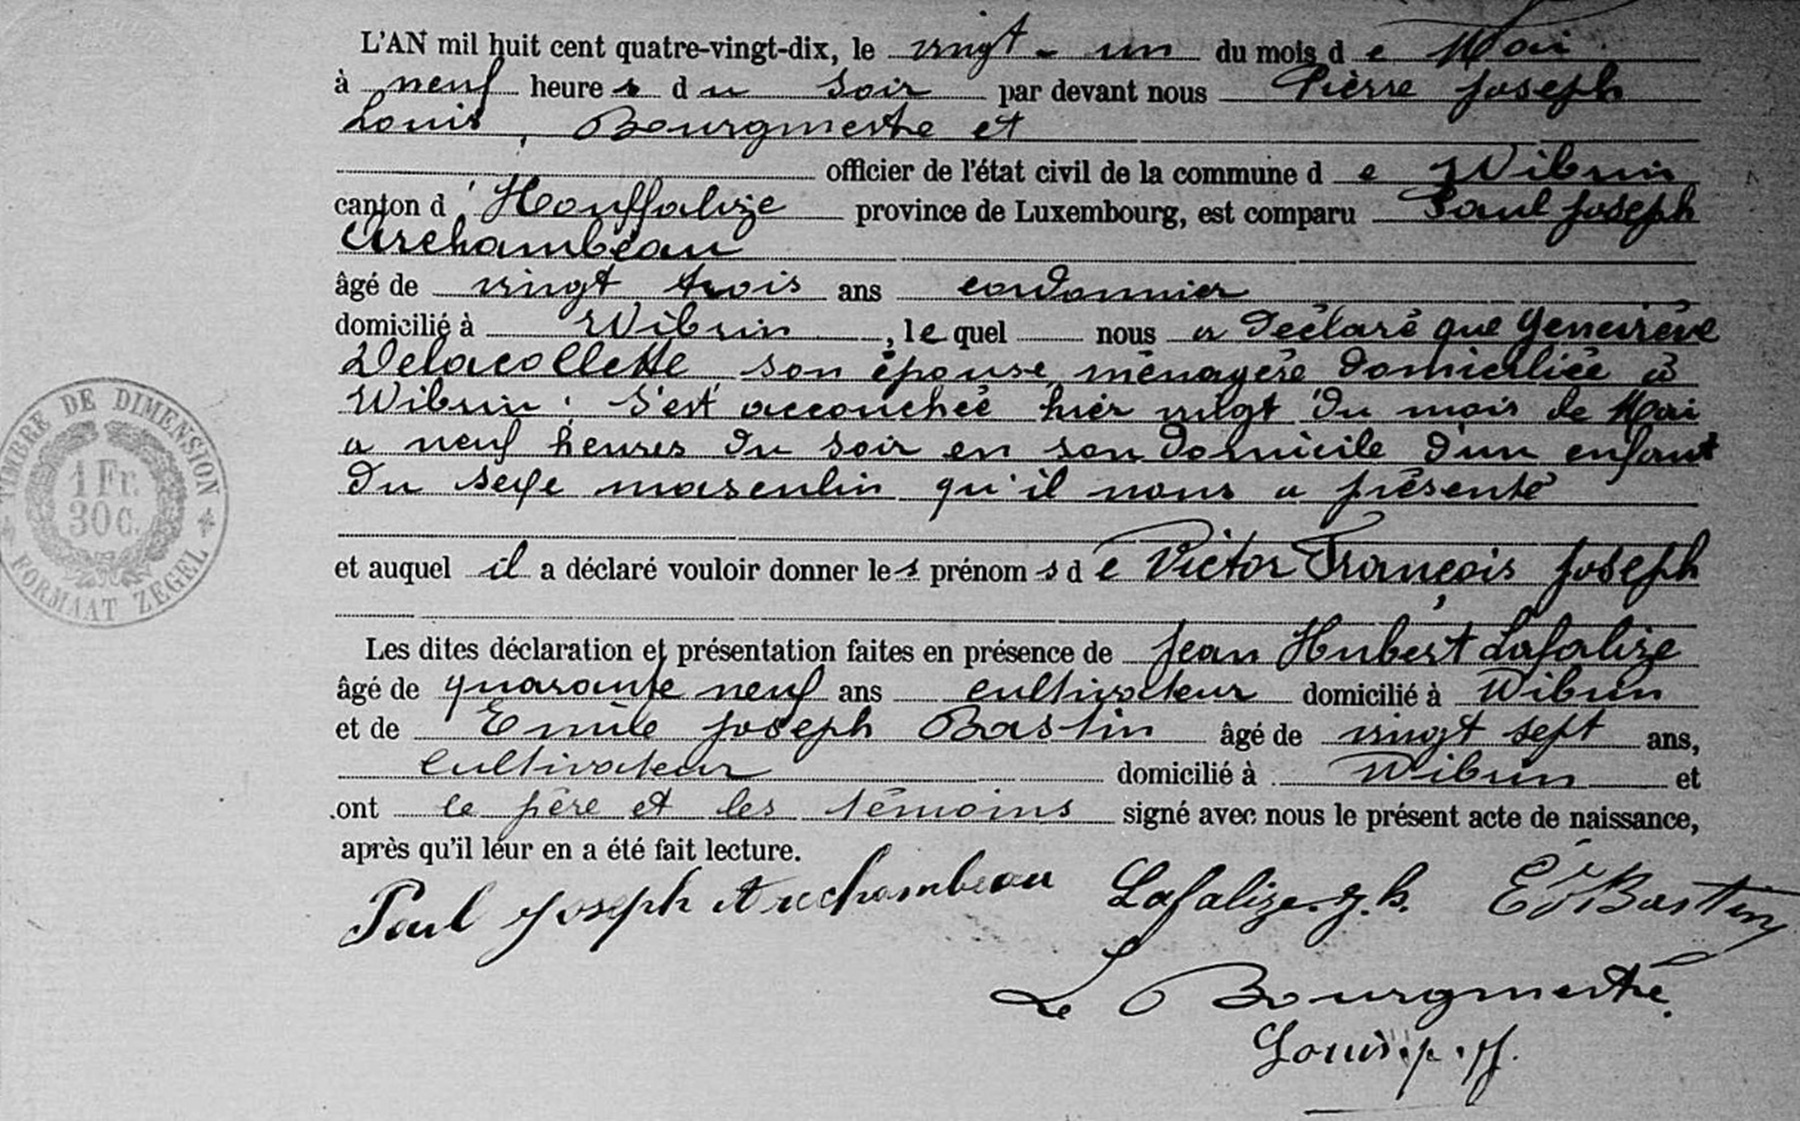 L'AN mil huit cent quatre-vingt-dix, le vingt-un du mois de Mai
à neuf heures du soir par devant nous Pièrre Joseph
Louis, Bourgmestre et
officier de l'état civil de la commune de Wibrin
canton d'Houffalize province de Luxembourg, est comparu Paul Joseph
Archambeau
âgé de vingt trois ans cordonnier
domicilié à Wibrin, lequel nous a déclaré que Geneviève
Delacollette son épouse ménagère domiciliée à
Wibrin, s'est accouchée hièr vingt du mois de Mai
a neuf heures du soir en son domicile d'un enfant
du sexe masculin qu'il nous a présenté
et auquel il a déclaré vouloir donner les prénoms de Victor François Joseph
Les dites déclaration et présentation faites en présence de Jean Hubert Lafalize
âgé de quarante neuf ans cultivateur domicilié à Wibrin
et de Emile Joseph Bastin âgé de vingt sept ans,
cultivateur domicilié à Wibrin et
ont le père et les témoins signé avec nous le présent acte de naissance,
après qu'il leur en a été fait lecture.
Paul Joseph Archambeau Lafalize. j. h. E J Bastin
Le Bourgmestre.
Louis. p. J.
TIMBRE DE DIMENSION
1 Fr.
30 c.
FORMAAT ZEGEL